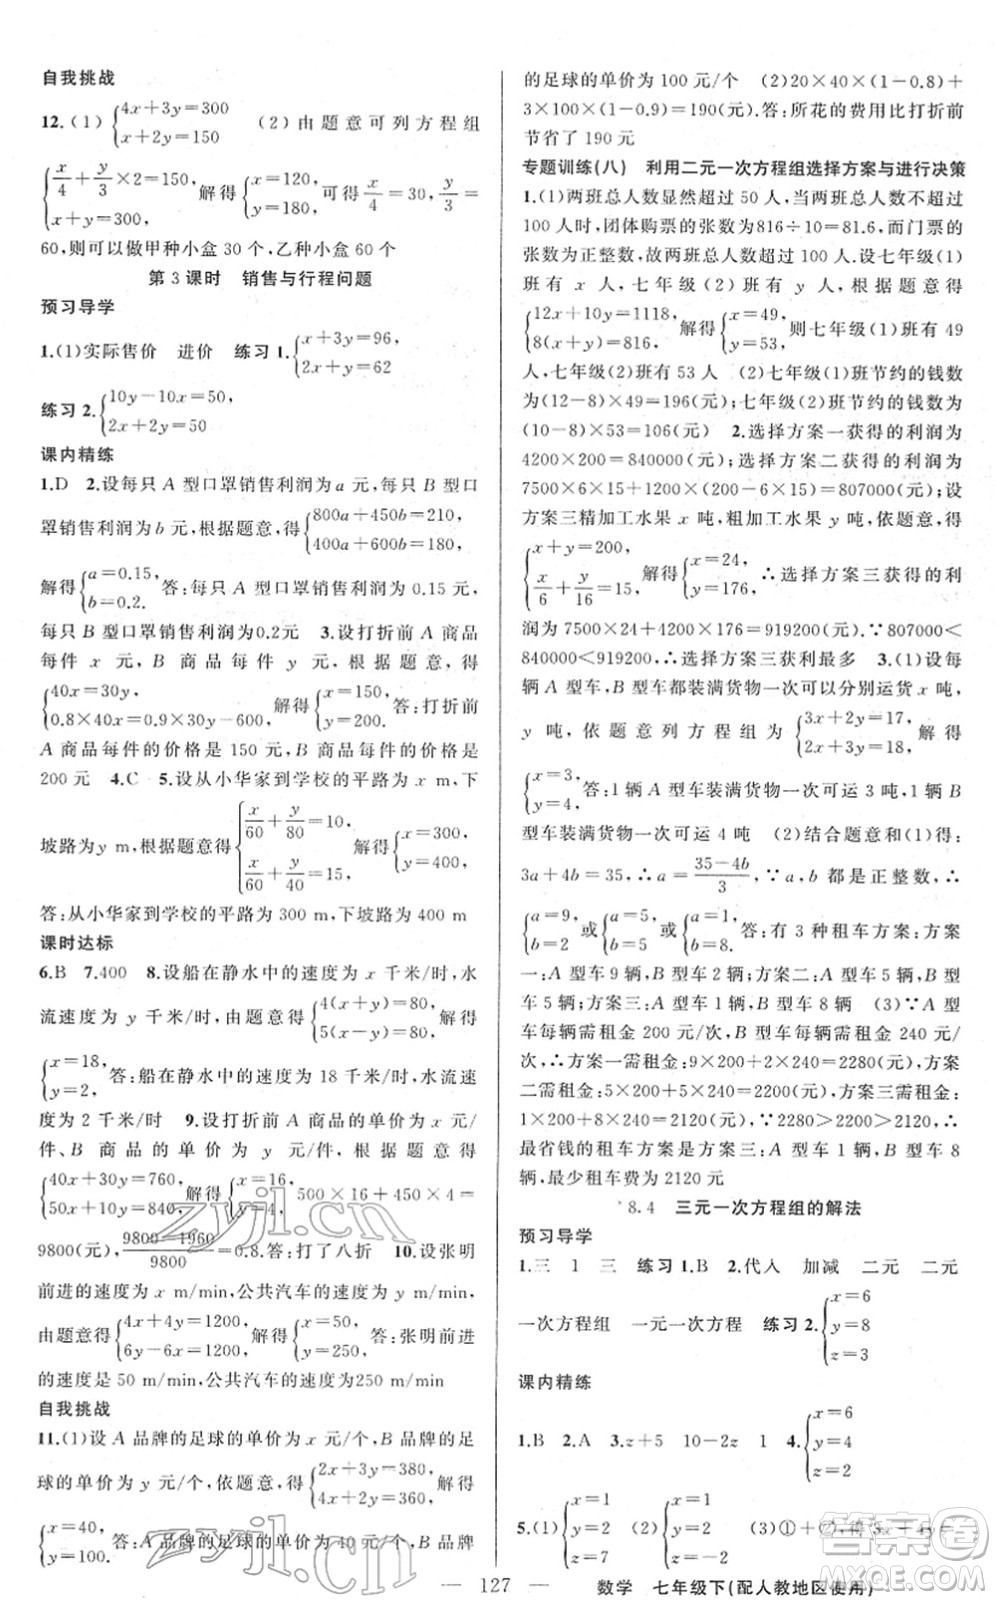 自我挑战
12.(1){4x+3y=300 x+2y=150 (2)由题意可列方程组
{x/4+y/3×2=150, x+y=300, 解得{x=120, y=180, 可得x/4=30,y/3=
60,则可以做甲种小盒30个,乙种小盒60个
第3课时 销售与行程问题
预习导学
1.(1)实际售价 进价 练习1.{x+3y=96, 2x+y=62
练习2.{10y-10x=50, 2x+2y=50
课内精练
1.D 2.设每只A型口罩销售利润为a元,每只B型口
罩销售利润为b元,根据题意,得{800a+450b=210, 400a+600b=180,
解得{a=0.15, b=0.2. 答:每只A型口罩销售利润为0.15元,
每只B型口罩销售利润为0.2元 3.设打折前A商品
每件x元,B商品每件y元,根据题意,得
{40x=30y, 0.8×40x=0.9×30y-600, 解得{x=150, y=200. 答:打折前
A商品每件的价格是150元,B商品每件的价格是
200元 4.C 5.设从小华家到学校的平路为x m,下
坡路为y m,根据题意得{x/60+y/80=10, x/60+y/40=15, 解得{x=300, y=400,
答:从小华家到学校的平路为300 m,下坡路为400 m
课时达标
6.B 7.400 8.设船在静水中的速度为x千米/时,水
流速度为y千米/时,由题意得{4(x+y)=80, 5(x-y)=80, 解得
{x=18, y=2. 答:船在静水中的速度为18千米/时,水流速
度为2千米/时 9.设打折前A商品的单价为x元/
件、B商品的单价为y元/件,根据题意得
{40x+30y=760, 50x+10y=840, 解得{x=16, y=4, 500×16+450×4=
9800(元),(9800-1960)/9800=0.8.答:打了八折 10.设张明
前进的速度为x m/min,公共汽车的速度为y m/min,
由题意得{4x+4y=1200, 6y-6x=1200, 解得{x=50, y=250, 答:张明前进
的速度是50 m/min,公共汽车的速度为250 m/min
自我挑战
11.(1)设A品牌的足球的单价为x元/个,B品牌的足
球的单价为y元/个,依题意,得{2x+3y=380, 4x+2y=360, 解得
{x=40, y=100. 答:A品牌的足球的单价为40元/个,B品牌
的足球的单价为100元/个 (2)20×40×(1-0.8)+
3×100×(1-0.9)=190(元).答:所花的费用比打折前
节省了190元
专题训练(八) 利用二元一次方程组选择方案与进行决策
1.(1)两班总人数显然超过50人,当两班总人数不超过
100人时,团体购票的张数为816÷10=81.6,而门票的
张数为整数,因此两班总人数超过100人,则总人数为
816÷8=102(人).设七年级(1)
班有x人,七年级(2)班有y人,根据题意得
{12x+10y=1118, 8(x+y)=816, 解得{x=49, y=53, 则七年级(1)班有49
人,七年级(2)班有53人 (2)七年级(1)班节约的钱数
为(12-8)×49=196(元),七年级(2)班节约的钱数为
(10-8)×53=106(元) 2.选择方案一获得的利润为
4200×200=840000(元);选择方案二获得的利润为
7500×6×15+1200×(200-6×15)=807000(元);设
方案三精加工水果x吨,粗加工水果y吨,依题意,得
{x+y=200, x/6+y/16=15, 解得{x=24, y=176, ∴选择方案三获得的利
润为7500×24+4200×176=919200(元).∵807000<
840000<919200,∴选择方案三获利最多 3.(1)设每
辆A型车、B型车都装满货物一次可以分别运货x吨、
y吨,依题意列方程组为{3x+2y=17, x+2y=11, 解得
{x=3, y=4, 答:1辆A型车装满货物一次可运3吨,1辆B
型车装满货物一次可运4吨 (2)结合题意和(1)得:
3a+4b=35,∴a=(35-4b)/3.∵a,b都是正整数,
∴{a=9, b=2 或{a=5, b=5 或{a=1, b=8. 答:有3种租车方案:方案
一:A型车9辆,B型车2辆;方案二:A型车5辆,B型
车5辆;方案三:A型车1辆,B型车8辆 (3)∵A型
车每辆需租金200元/次,B型车每辆需租金240元/
次,∴方案一需租金:9×200+2×240=2280(元),方案
二需租金:5×200+5×240=2200(元),方案三需租金:
1×200+8×240=2120(元),∵2280>2200>2120,∴
最省钱的租车方案是方案三:A型车1辆,B型车8
辆,最少租车费为2120元
8.4 三元一次方程组的解法
预习导学
1.三 1 三 练习1.B 2.代入 加减 二元 二元
一次方程组 一元一次方程 练习2.{x=6 y=8 z=3
课内精练
1.B 2.A 3.z+5 10-2z 1 4.{x=6 y=4 z=2
5.(1){x=1 y=2 z=3 (2){x=2 y=1 z=-1 (3)①+②,得5x+4y=
127
数学 七年级下(配人教地区使用)
zyjl.cn
zyjl.cn
答案圈
MXQE.COM